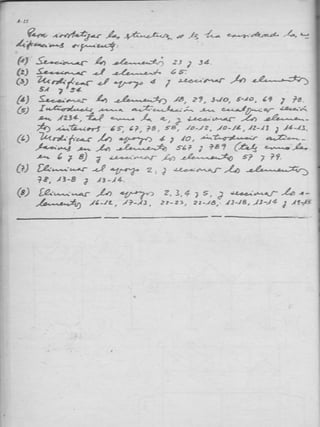 Para isostatizar la estructura, se ha considerado las
diferentes siguientes:
(1) Seccionar los elementos 23 y 34.
(2) Seccionar el elemento 65.
(3) Modificar el apoyo 4 y seccionar los elementos
51 y
(4) Seccionar los elementos 18, 29, 3-10, 6-10, 69 y 78.
(5) Introducir una articulación en cualquier sección
en 1234, tal como la 2, y seccionar los elemen-
tos interiores 65, 67, 78, 10-12, 10-14, 12-13 y 14-13.
(6) Modificar los apoyos 4 y 10, introducir articu-
laciones en los elementos 567 y 789 (tales como las
en 6 y 8) y seccionar los elementos 57 y 79.
(7) Eliminar el apoyo 2, y seccionar los elementos
78, 13-8 y 13-14.
(8) Eliminar los apoyos 2, 3, 4 y 5, y seccionar los e-
lementos 16-12, 17-13, 22-23, 13-18, 13-14 y